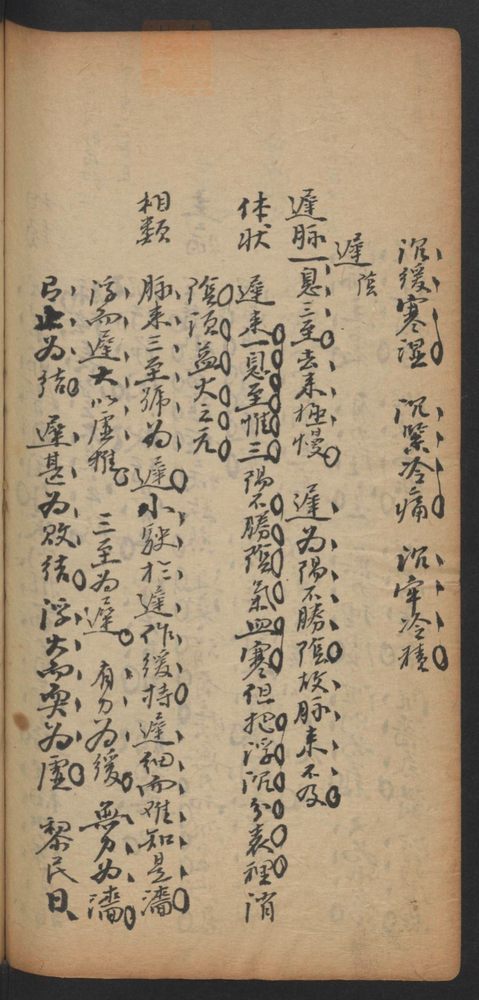 沉緩寒湿　沉緊冷痛　沉牢冷積
遲　陰
遲脉一息三至去来極慢　遲为陽不勝陰故脉来不及
体状　遲来一息至惟三陽不勝陰氣血寒但把浮沉分表裡消
陰須益火之元
相類　脉来三至號为遲小駛於遲作緩持遲細而难知是濇
浮而遲大以虚推　三至为遲　有力为緩　無力为濇
有止为結　遲甚为敗結　浮大而耎为虚　黎民曰